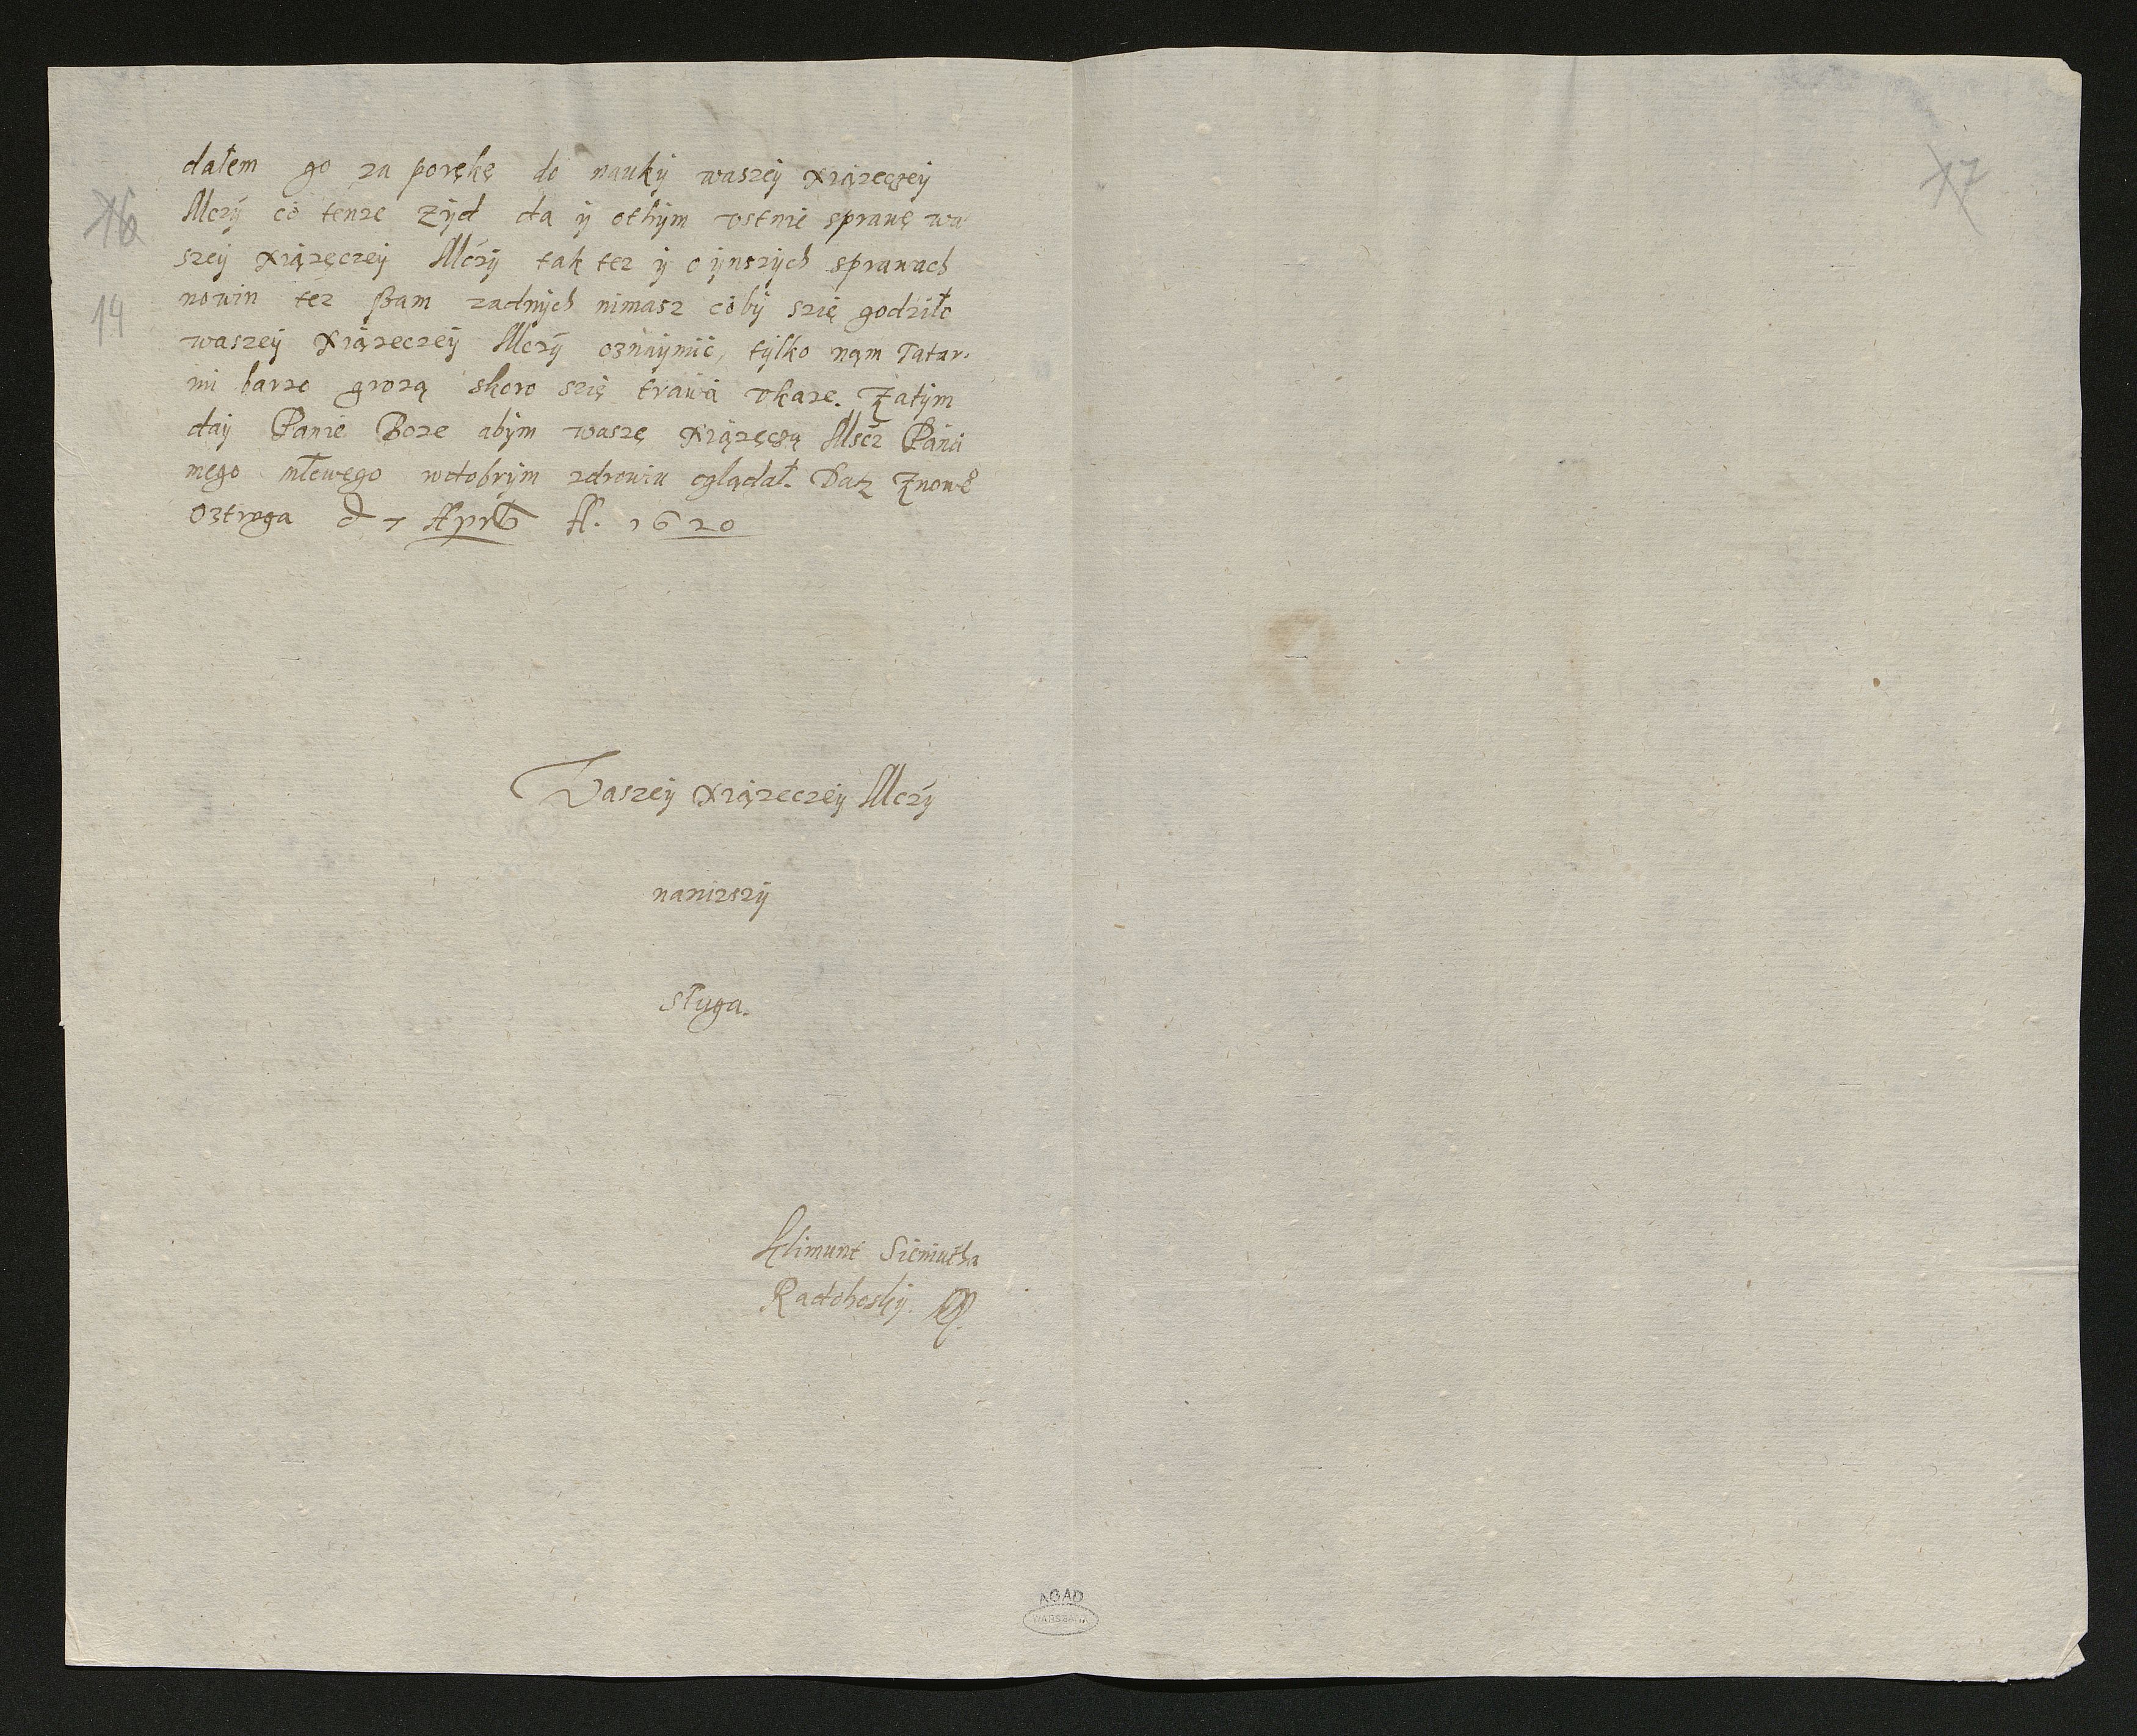 dałem go za porękę do naukÿ waszeÿ xiązęczeÿ
Mczÿ co tenze zÿd da ÿ othÿm vstnie sprawę wa
szeÿ xiązęczeÿ Mczÿ tak tez ÿ o ÿnszÿch sprawach
nowin tez Sam zadnÿch nimasz cobÿ szię godziło
waszeÿ xiązeczeÿ Mczÿ oznaÿmic, tÿlko nąm Tatar-
mi barzo grozą skoro szię trawa vkaze. Zatÿm
daÿ Panie Boze abÿm waszę xiązęczą Mscz Pana
mego młcwego wdobrÿm zdrowiu oglądał. Datz Znowe
Oztroga d 7 April A. 1620
Waszeÿ xiązeczeÿ Mczÿ
nanizszÿ
sługa.
Klimunt
Radohoskÿ.
16
14
17
AGAD
WARSZAWA